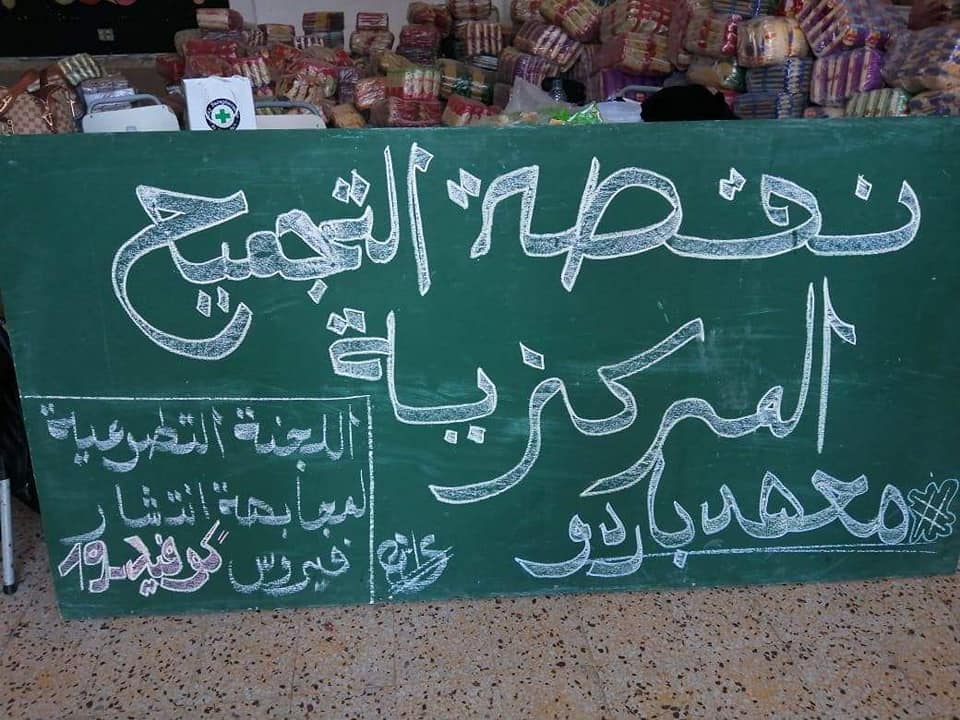 نقطة التجميع
المركزية
#معهد باردو
اللجنة التطوعية
لمجابهة انتشار
فيروس كوفيد-19